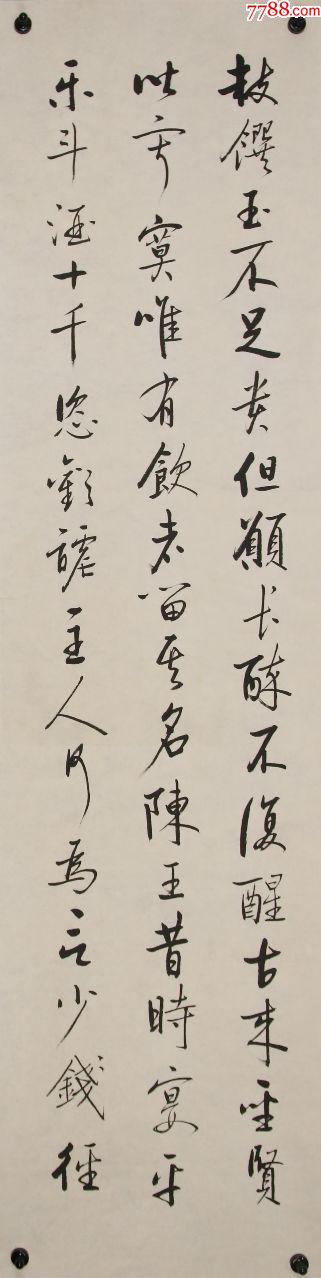 7788.com
鼓饌玉不足貴但願長醉不復醒古來聖賢
皆寂寞唯有飲者留其名陳王昔時宴平
樂斗酒十千恣歡謔主人何為言少錢徑